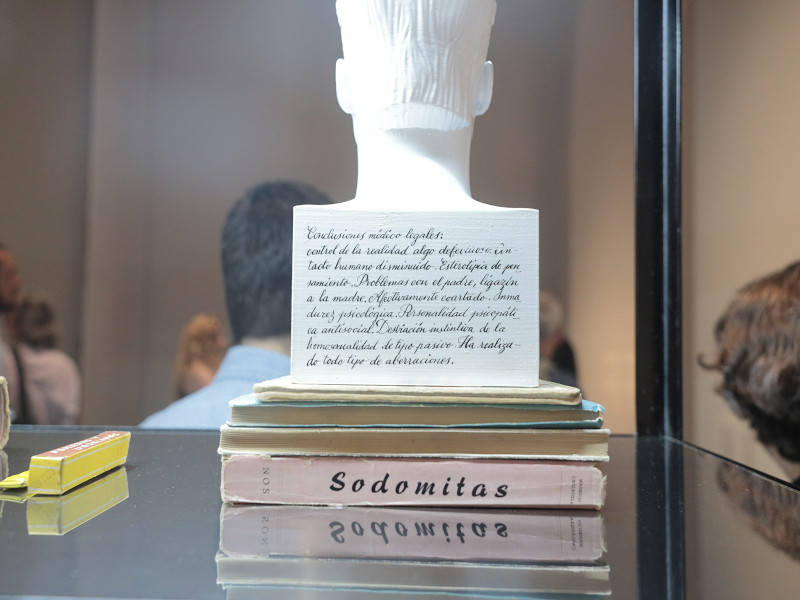 Conclusiones médico legales:
control de la realidad algo defectuoso. Con-
tacto humano disminuido. Esterotipia de pen
samiento. Problemas con el padre, ligazón
a la madre. Afectivamente coartado. Inma
durez psicológica. Personalidad psicopáti
ca antisocial. Desviación instintiva de la
homosexualidad de tipo pasivo. Ha realiza-
do todo tipo de aberraciones.
NOS
Sodomitas